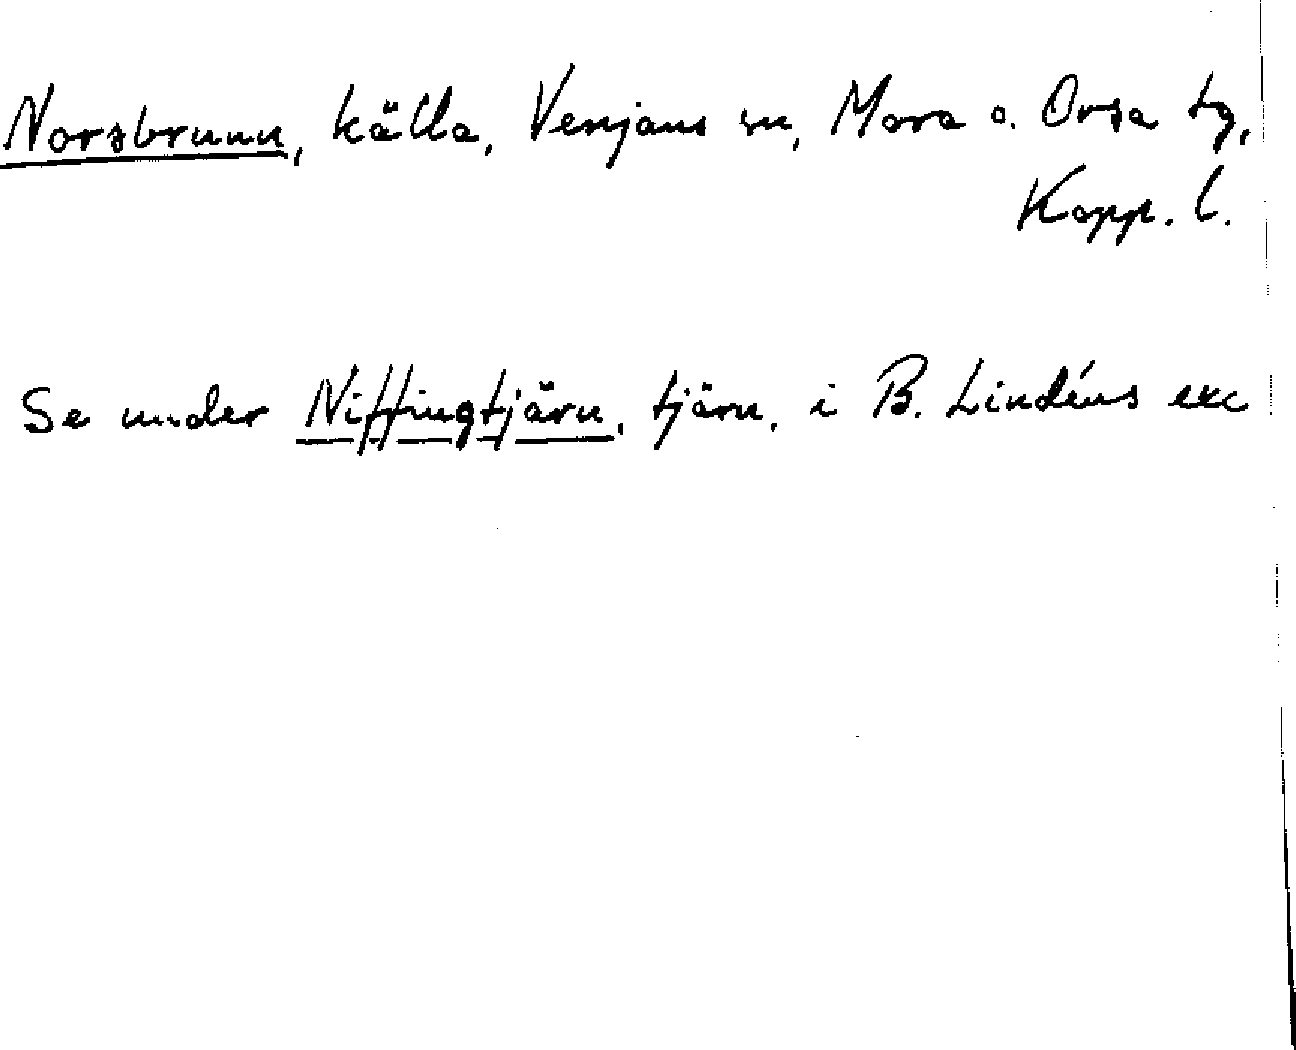 Norsbrunn, källa, Venjans sn, Mora o. Orsa tg,
Kopp. l.
Se under Niffingtjärn, tjärn, i B. Lindéns exc